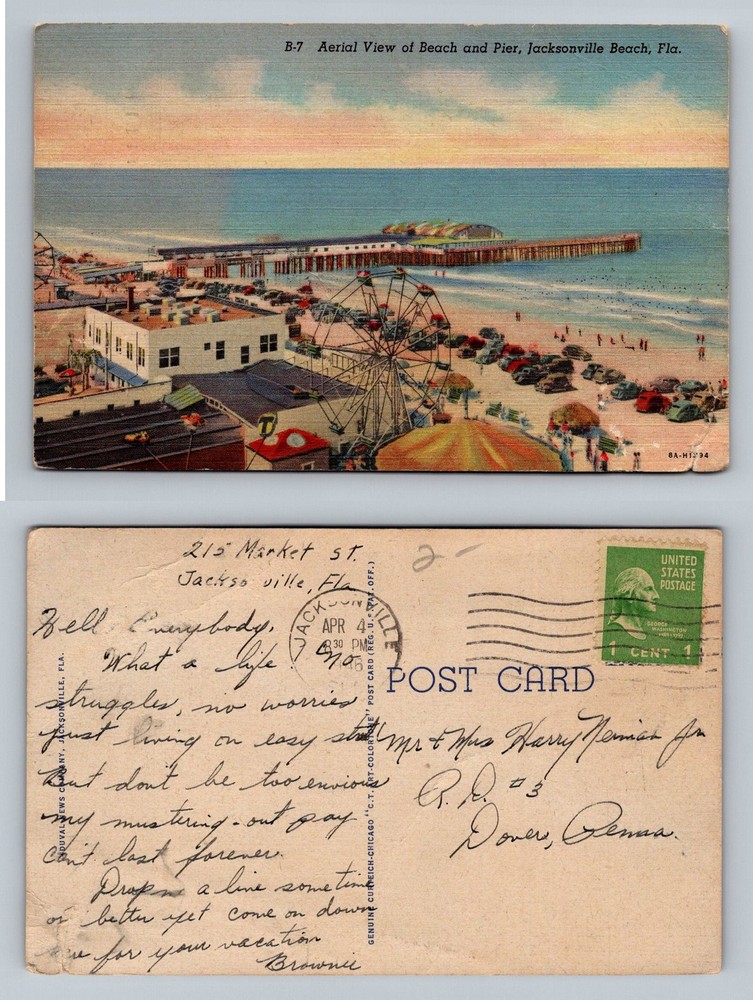 B-7 Aerial View of Beach and Pier, Jacksonville Beach, Fla.
T
8A-H1794
215 Market St.
Jacksonville, Fla
Hell Everybody,
What a life! No
struggles, no worries
just living on easy street
But don't be too envious
my mustering-out pay
can't last forever.
Drop a line sometime
or better yet come on down
for your vacation
Brownie
DUVAL NEWS COMPANY, JACKSONVILLE, FLA.
GENUINE CURTEICH-CHICAGO "C.T. ART-COLORTONE" POST CARD (REG. U.S. PAT. OFF.)
2-
JACKSONVILLE
APR 4
8 30 PM
UNITED
STATES
POSTAGE
GEORGE
WASHINGTON
1 CENT 1
POST CARD
Mr & Mrs Harry Neiman Jr
R. D. #3
Dover, Penna.